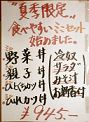 "夏季限定"
食べやすいミニセット
始めました。
野菜丼
親子丼
ひとくちカツ丼
ひれカツ丼
冷奴
サラダ
みそ汁
お新香付
¥945-